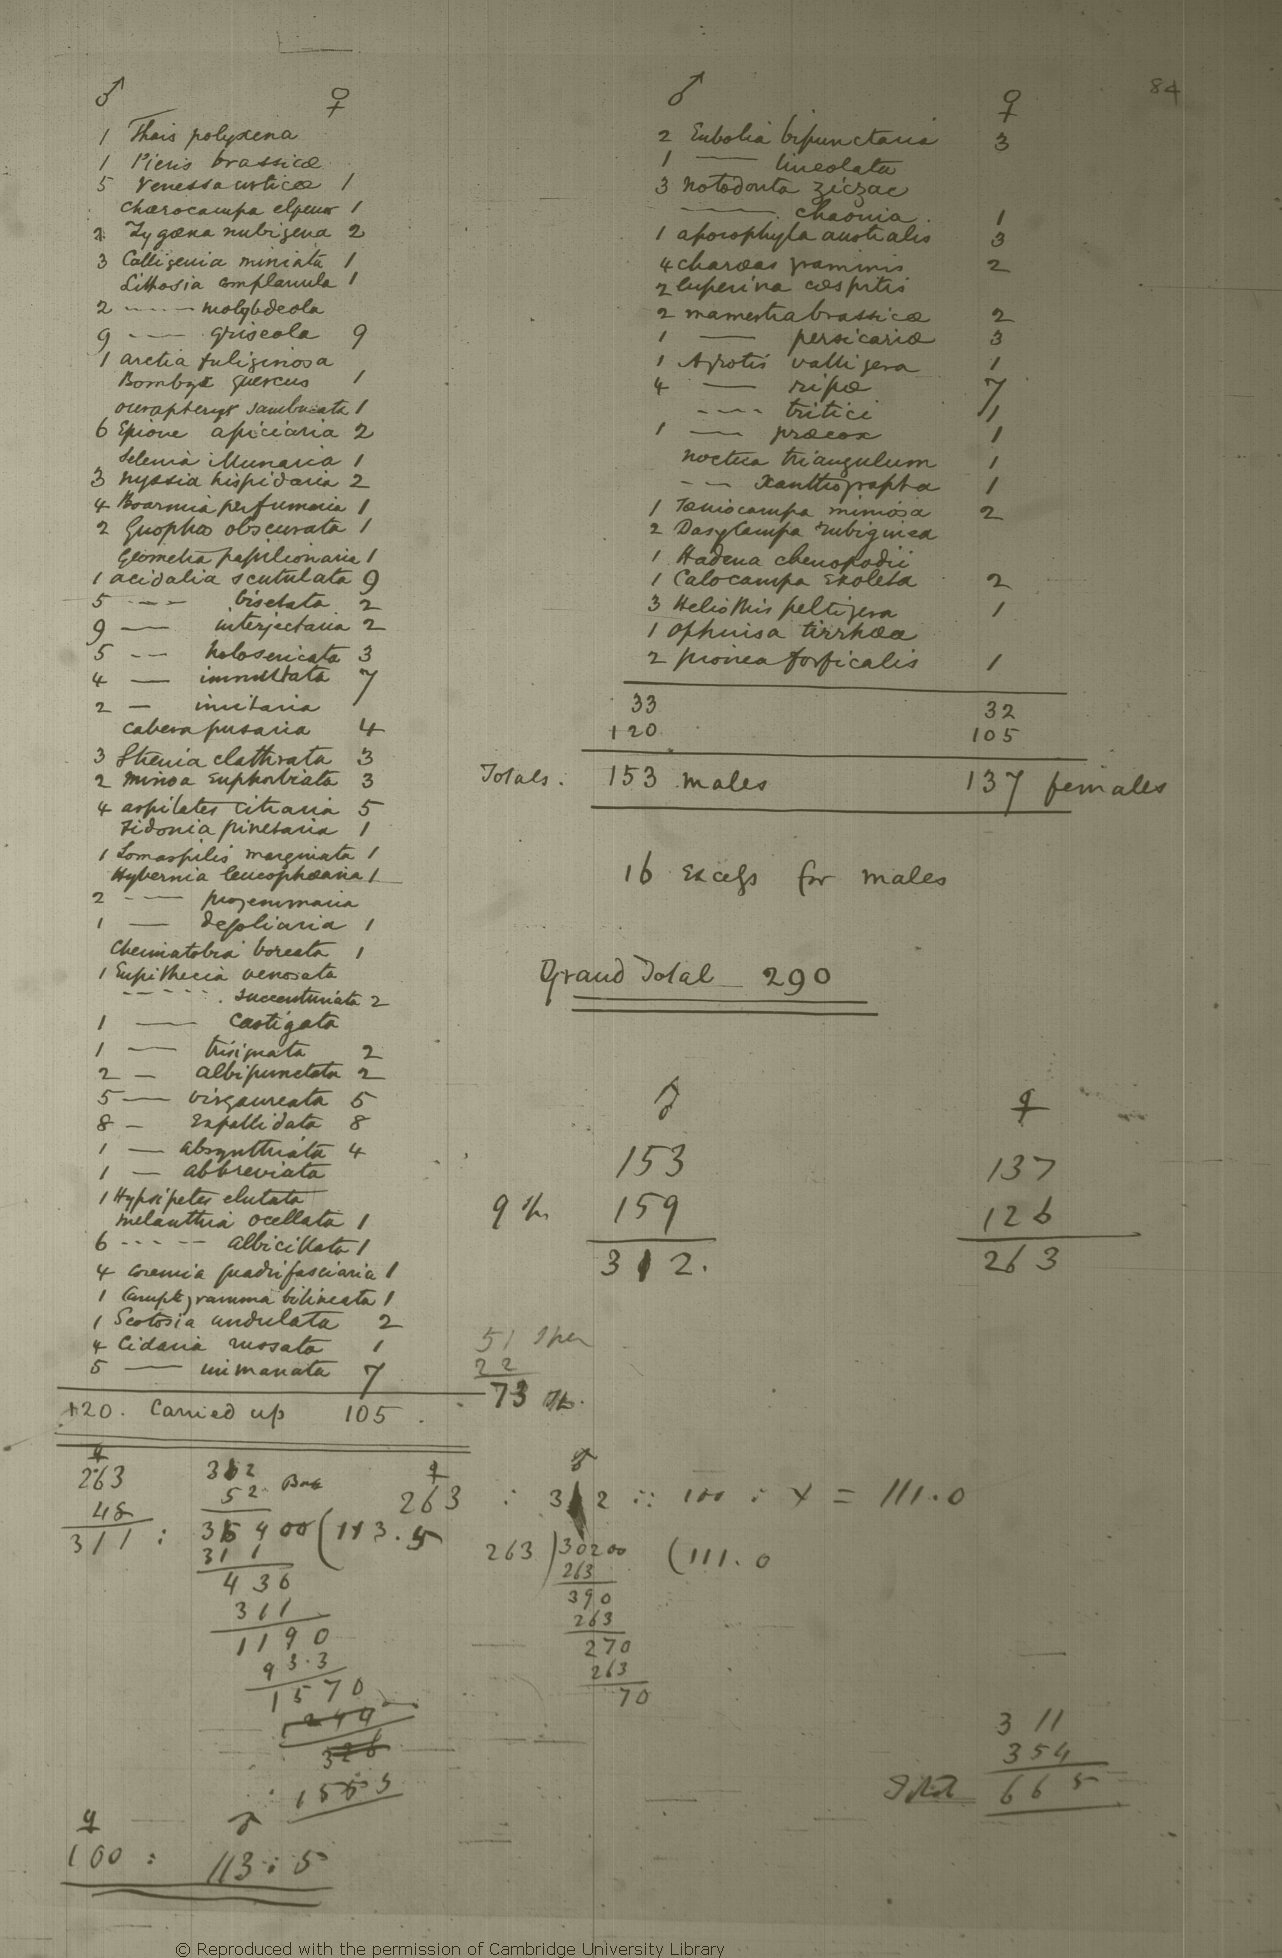 84
♂ ♀
1 Thais polyxena
1 Pieris brassicæ
5 Venessa urticæ 1
Chærocampa elpenor 1
2 Zygæna nubigena 2
3 Calligenia miniata 1
Lithosia complanula 1
2 ----- molybdeola
9 —— griseola 9
1 arctia fuliginosa
Bombyx quercus 1
ourapteryx sambucata 1
6 Epione apiciaria 2
Selenia illunaria 1
3 Nyssia hispidaria 2
4 Boarmia perfumaria 1
2 Gnophos obscurata 1
Geometra papilionaria 1
1 acidalia scutulata 9
5 --- bisetata 2
9 —— interjectaria 2
5 --- holosericata 3
4 —— immutata 7
2 — imitaria
Cabera pusaria 4
3 Strenia clathrata 3
2 Minoa Euphorbiata 3
4 aspilates citraria 5
Fidonia pinetaria 1
1 Lomaspilis marginata 1
Hybernia leucophæaria 1
2 ---- progemmaria
1 —— defoliaria 1
Cheimatobia boreata 1
1 Eupithecia venosata
------ succenturiata 2
1 —— Castigata
1 —— trisignata 2
2 — albipunctata 2
5 —— virgaureata 5
8 — Expallidata 8
1 — absynthiata 4
1 — abbreviata
1 Hypsipetes elutata
melanthia ocellata 1
6 ----- albicillata 1
4 coremia quadrifasciaria 1
1 Camptogramma bilineata 1
1 Scotosia undulata 2
4 Cidaria russata 1
5 —— immanata 7
120. Carried up 105.
♂ ♀
2 Eubolia bipunctaria 3
1 —— lineolata
3 Notodonta ziczac
—— chaonia. 1
1 aporophyla australis 3
4 charæas graminis 2
2 luperina cæspitis
2 mamestra brassicæ 2
1 —— persicariæ 3
1 Agrotis valligera 1
4 —— ripæ 7
---- tritici 1
1 —— præcox 1
Noctua triangulum 1
--- Xanthographa 1
1 Tæniocampa miniosa 2
2 Dasycampa rubiginea
1 Hadena chenopodii
1 Calocampa Exoleta 2
3 Heliothis peltigera 1
1 ophiusa tirrhæa
2 pionea forficalis 1
33 32
120 105
Totals. 153 males 137 females
16 Excess for males
Grand Total 290
♂ ♀
153 137
9 159 126
312. 263
51
22
73
♀
263 312
48 52
311 : 36400 (113.5
311
436
311
1190
933
1570
1244
326
1555
♀ ♂
100 : 113 : 5
♀ ♂
263 : 312 :: 100 : x = 111.0
263 ) 30200 (111.0
263
390
263
270
263
70
311
354
Total 665
© Reproduced with the permission of Cambridge University Library